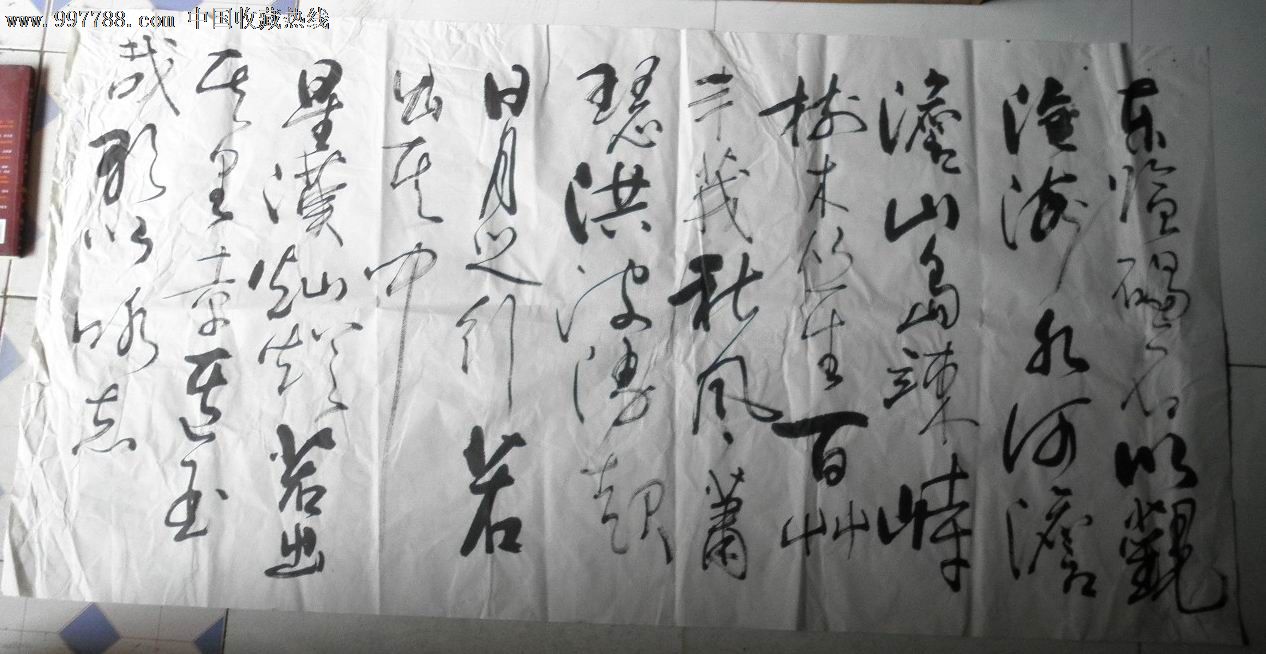 www.997788.com 中国收藏热线
东临碣石以觀
沧海水何澹
澹山島竦峙
樹木丛生百艸
丰茂秋风萧
瑟洪波湧起
日月之行若
出其中
星漢灿烂若出
其里幸甚至
哉歌以咏志